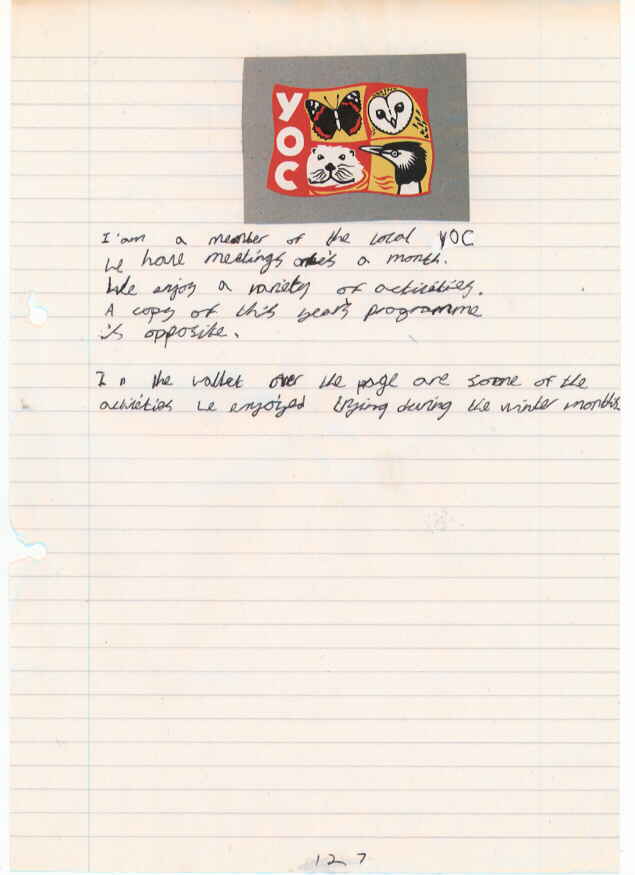 YOC
I'am a member of the local YOC
we have meetings a month.
We enjoy a variety of activities.
A copy of this years programme
is opposite.
In the wallet over the page are some of the
activities we enjoyed trying during the winter months
127